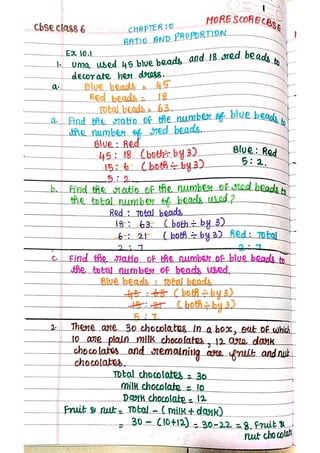 1
MORESCORECBSE
CBSE Class 6
CHAPTER 10
RATIO AND PROPORTION
Ex 10.1
1. Uma used 45 blue beads and 18 red beads to
decorate her dress.
a. Blue beads = 45
Red beads = 18
Total beads = 63.
a. Find the ratio of the number of blue beads to
the number of red beads.
Blue : Red
45 : 18 (both ÷ by 3) Blue : Red
15 : 6 (both ÷ by 3) 5 : 2.
5 : 2
b. Find the ratio of the number of red beads to
the total number of beads used?
Red : Total beads
18 : 63 (both ÷ by 3)
6 : 21 (both ÷ by 3) Red : Total
2 : 7 2 : 7
c. Find the ratio of the number of blue beads to
the total number of beads used.
Blue beads : Total beads
45 : 63 (both ÷ by 3)
15 : 21 (both ÷ by 3)
5 : 7.
2. There are 30 chocolates in a box, out of which
10 are plain milk chocolates, 12 are dark
chocolates and remaining are fruit and nut
chocolates.
Total chocolates = 30
milk chocolate = 10
Dark chocolate = 12
Fruit & nut = Total - (milk + dark)
= 30 - (10+12) = 30-22 = 8. Fruit &
nut chocolate